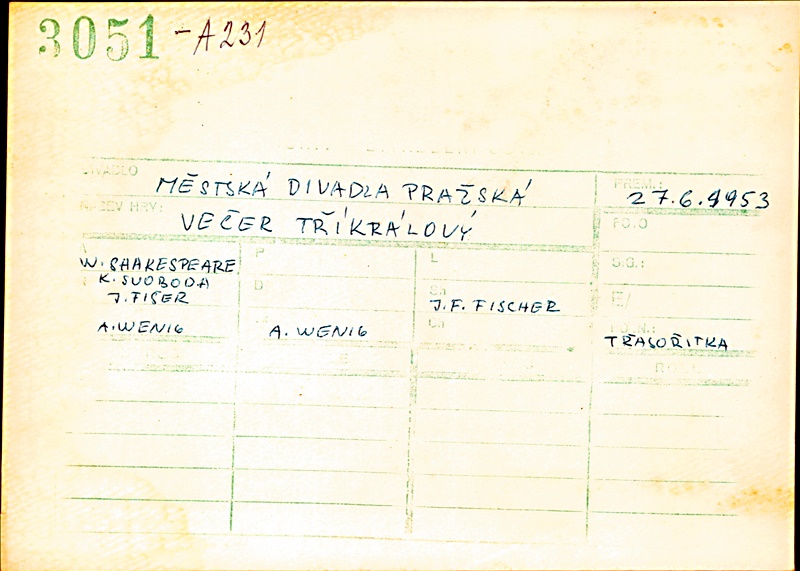 3051 -A231
DIVADLO MĚSTSKÁ DIVADLA PRAŽSKÁ PREM.: 27.6.1953
NÁZEV HRY: VEČER TŘÍKRÁLOVÝ FOTO
A P L S.G.:
W. SHAKESPEARE
K. SVOBODA D Sh E/
J. FIŠER J.F. FISCHER
A. WENIG A. WENIG Ch POZN.: TŘASOŘITKA